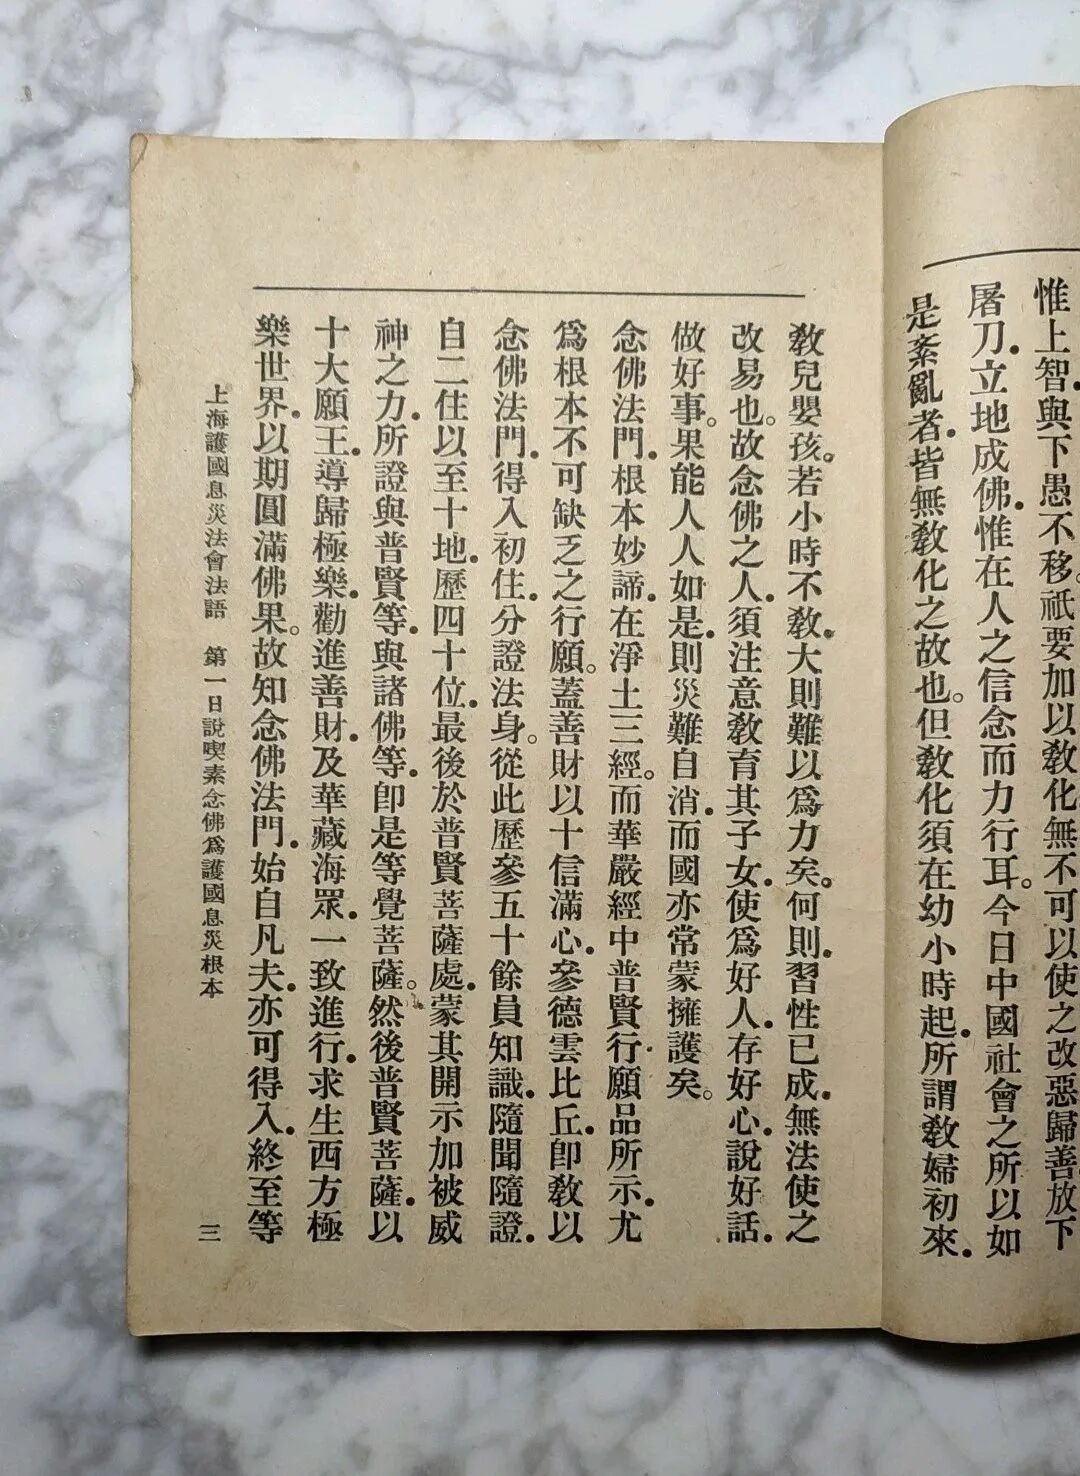 惟上智與下愚不移。祇要加以教化無不可以使之改惡歸善放下
屠刀．立地成佛．惟在人之信念而力行耳。今日中國社會之所以如
是紊亂者．皆無教化之故也。但教化須在幼小時起．所謂教婦初來．
教兒嬰孩。若小時不教．大則難以爲力矣。何則．習性已成．無法使之
改易也。故念佛之人．須注意教育其子女．使爲好人．存好心．說好話．
做好事。果能人人如是．則災難自消．而國亦常蒙擁護矣。
念佛法門．根本妙諦．在淨土三經。而華嚴經中普賢行願品所示．尤
爲根本不可缺乏之行願。蓋善財以十信滿心．參德雲比丘．卽教以
念佛法門．得入初住．分證法身。從此歷參五十餘員知識．隨聞隨證．
自二住以至十地．歷四十位．最後於普賢菩薩處．蒙其開示加被威
神之力．所證與普賢等．與諸佛等．卽是等覺菩薩。然後普賢菩薩．以
十大願王．導歸極樂．勸進善財．及華藏海眾．一致進行．求生西方極
樂世界．以期圓滿佛果。故知念佛法門．始自凡夫．亦可得入．終至等
上海護國息災法會法語　第一日說喫素念佛爲護國息災根本
三